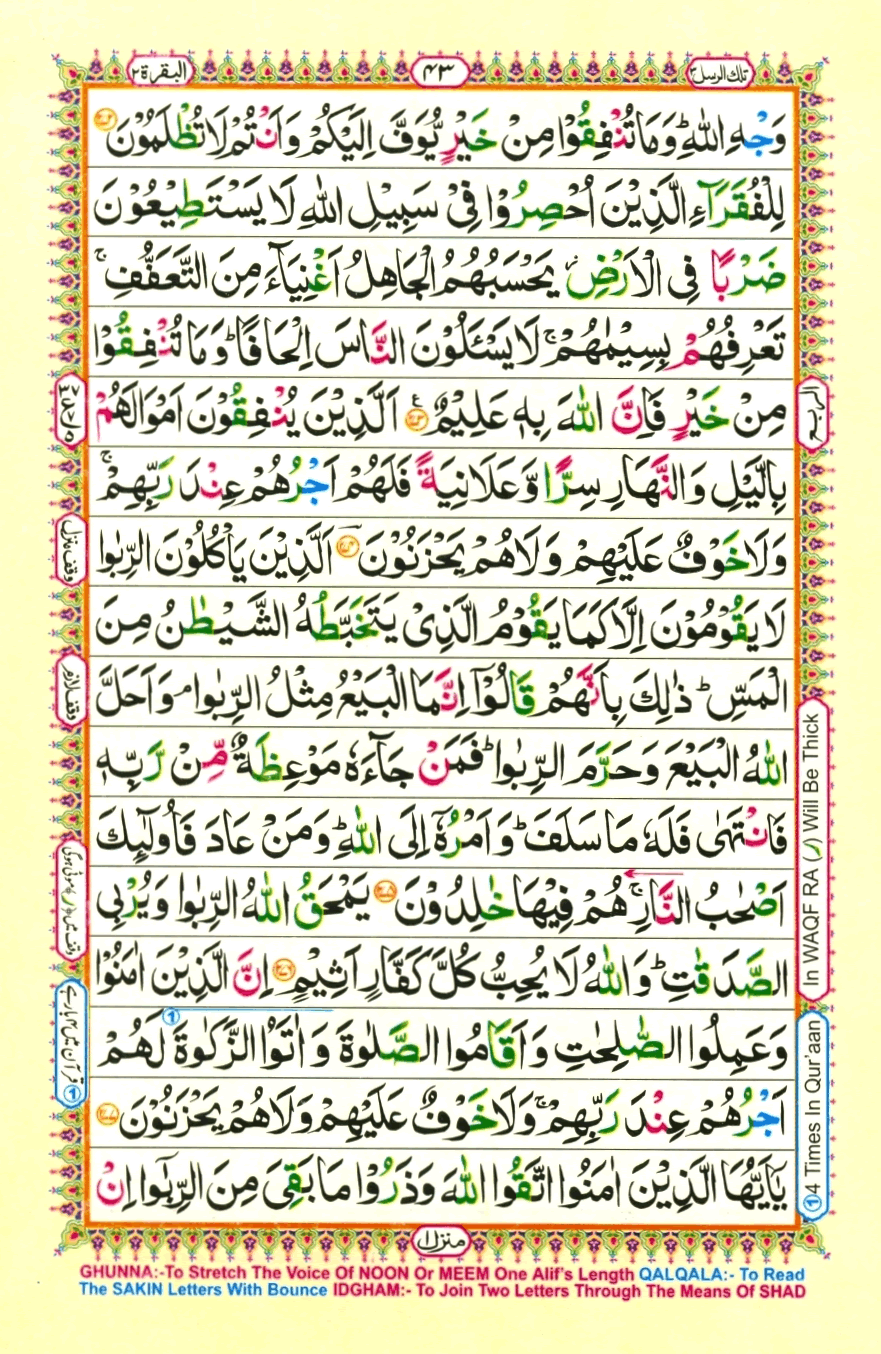 تلك الرسل ٣
٤٣
البقرة ٢
وَجْهِ اللّٰهِ ؕ وَمَا تُنْفِقُوْا مِنْ خَیْرٍ یُّوَفَّ اِلَیْكُمْ وَاَنْتُمْ لَا تُظْلَمُوْنَ ﴿۲۷۲﴾
لِلْفُقَرَآءِ الَّذِیْنَ اُحْصِرُوْا فِیْ سَبِیْلِ اللّٰهِ لَا یَسْتَطِیْعُوْنَ
ضَرْبًا فِی الْاَرْضِ ؗ یَحْسَبُهُمُ الْجَاهِلُ اَغْنِیَآءَ مِنَ التَّعَفُّفِ ۚ
تَعْرِفُهُمْ بِسِیْمٰهُمْ ۚ لَا یَسْـَٔلُوْنَ النَّاسَ اِلْحَافًا ؕ وَمَا تُنْفِقُوْا
مِنْ خَیْرٍ فَاِنَّ اللّٰهَ بِهٖ عَلِیْمٌ ﴿۲۷۳﴾ اَلَّذِیْنَ یُنْفِقُوْنَ اَمْوَالَهُمْ
بِالَّیْلِ وَالنَّهَارِ سِرًّا وَّعَلَانِیَةً فَلَهُمْ اَجْرُهُمْ عِنْدَ رَبِّهِمْ ۚ
وَلَا خَوْفٌ عَلَیْهِمْ وَلَا هُمْ یَحْزَنُوْنَ ﴿۲۷۴﴾ اَلَّذِیْنَ یَاْكُلُوْنَ الرِّبٰوا
لَا یَقُوْمُوْنَ اِلَّا كَمَا یَقُوْمُ الَّذِیْ یَتَخَبَّطُهُ الشَّیْطٰنُ مِنَ
الْمَسِّ ؕ ذٰلِكَ بِاَنَّهُمْ قَالُوْۤا اِنَّمَا الْبَیْعُ مِثْلُ الرِّبٰوا ۘ وَاَحَلَّ
اللّٰهُ الْبَیْعَ وَحَرَّمَ الرِّبٰوا ؕ فَمَنْ جَآءَهٗ مَوْعِظَةٌ مِّنْ رَّبِّهٖ
فَانْتَهٰی فَلَهٗ مَا سَلَفَ ؕ وَاَمْرُهٗۤ اِلَی اللّٰهِ ؕ وَمَنْ عَادَ فَاُولٰٓئِكَ
اَصْحٰبُ النَّارِ ۚ هُمْ فِیْهَا خٰلِدُوْنَ ﴿۲۷۵﴾ یَمْحَقُ اللّٰهُ الرِّبٰوا وَیُرْبِی
الصَّدَقٰتِ ؕ وَاللّٰهُ لَا یُحِبُّ كُلَّ كَفَّارٍ اَثِیْمٍ ﴿۲۷۶﴾ اِنَّ الَّذِیْنَ اٰمَنُوْا
وَعَمِلُوا الصّٰلِحٰتِ وَاَقَامُوا الصَّلٰوةَ وَاٰتَوُا الزَّكٰوةَ ① لَهُمْ
اَجْرُهُمْ عِنْدَ رَبِّهِمْ ۚ وَلَا خَوْفٌ عَلَیْهِمْ وَلَا هُمْ یَحْزَنُوْنَ ﴿۲۷۷﴾
یٰۤاَیُّهَا الَّذِیْنَ اٰمَنُوا اتَّقُوا اللّٰهَ وَذَرُوْا مَا بَقِیَ مِنَ الرِّبٰۤوا اِنْ
الربع
In WAQF RA (ر) Will Be Thick
① 4 Times In Qur'aan
وقف منزل
منزل ١
GHUNNA:-To Stretch The Voice Of NOON Or MEEM One Alif's Length QALQALA:- To Read
The SAKIN Letters With Bounce IDGHAM:- To Join Two Letters Through The Means Of SHAD